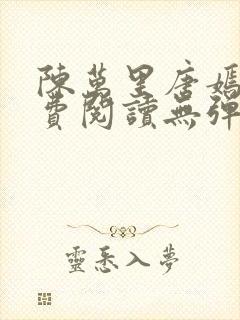 陳萬里唐嫣
費閱讀無彈
靈悉入夢